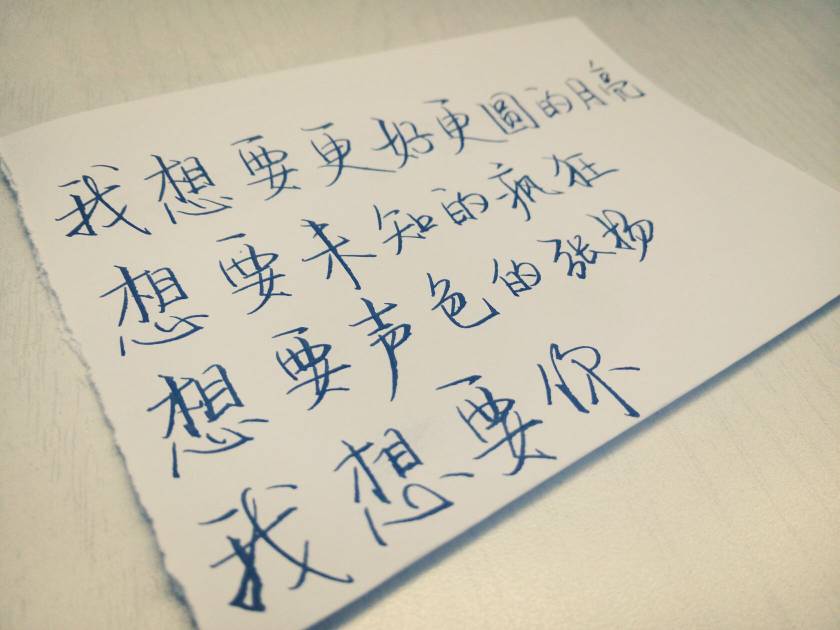 我想要更好更圆的月亮
想要未知的疯狂
想要声色的张扬
我想要你